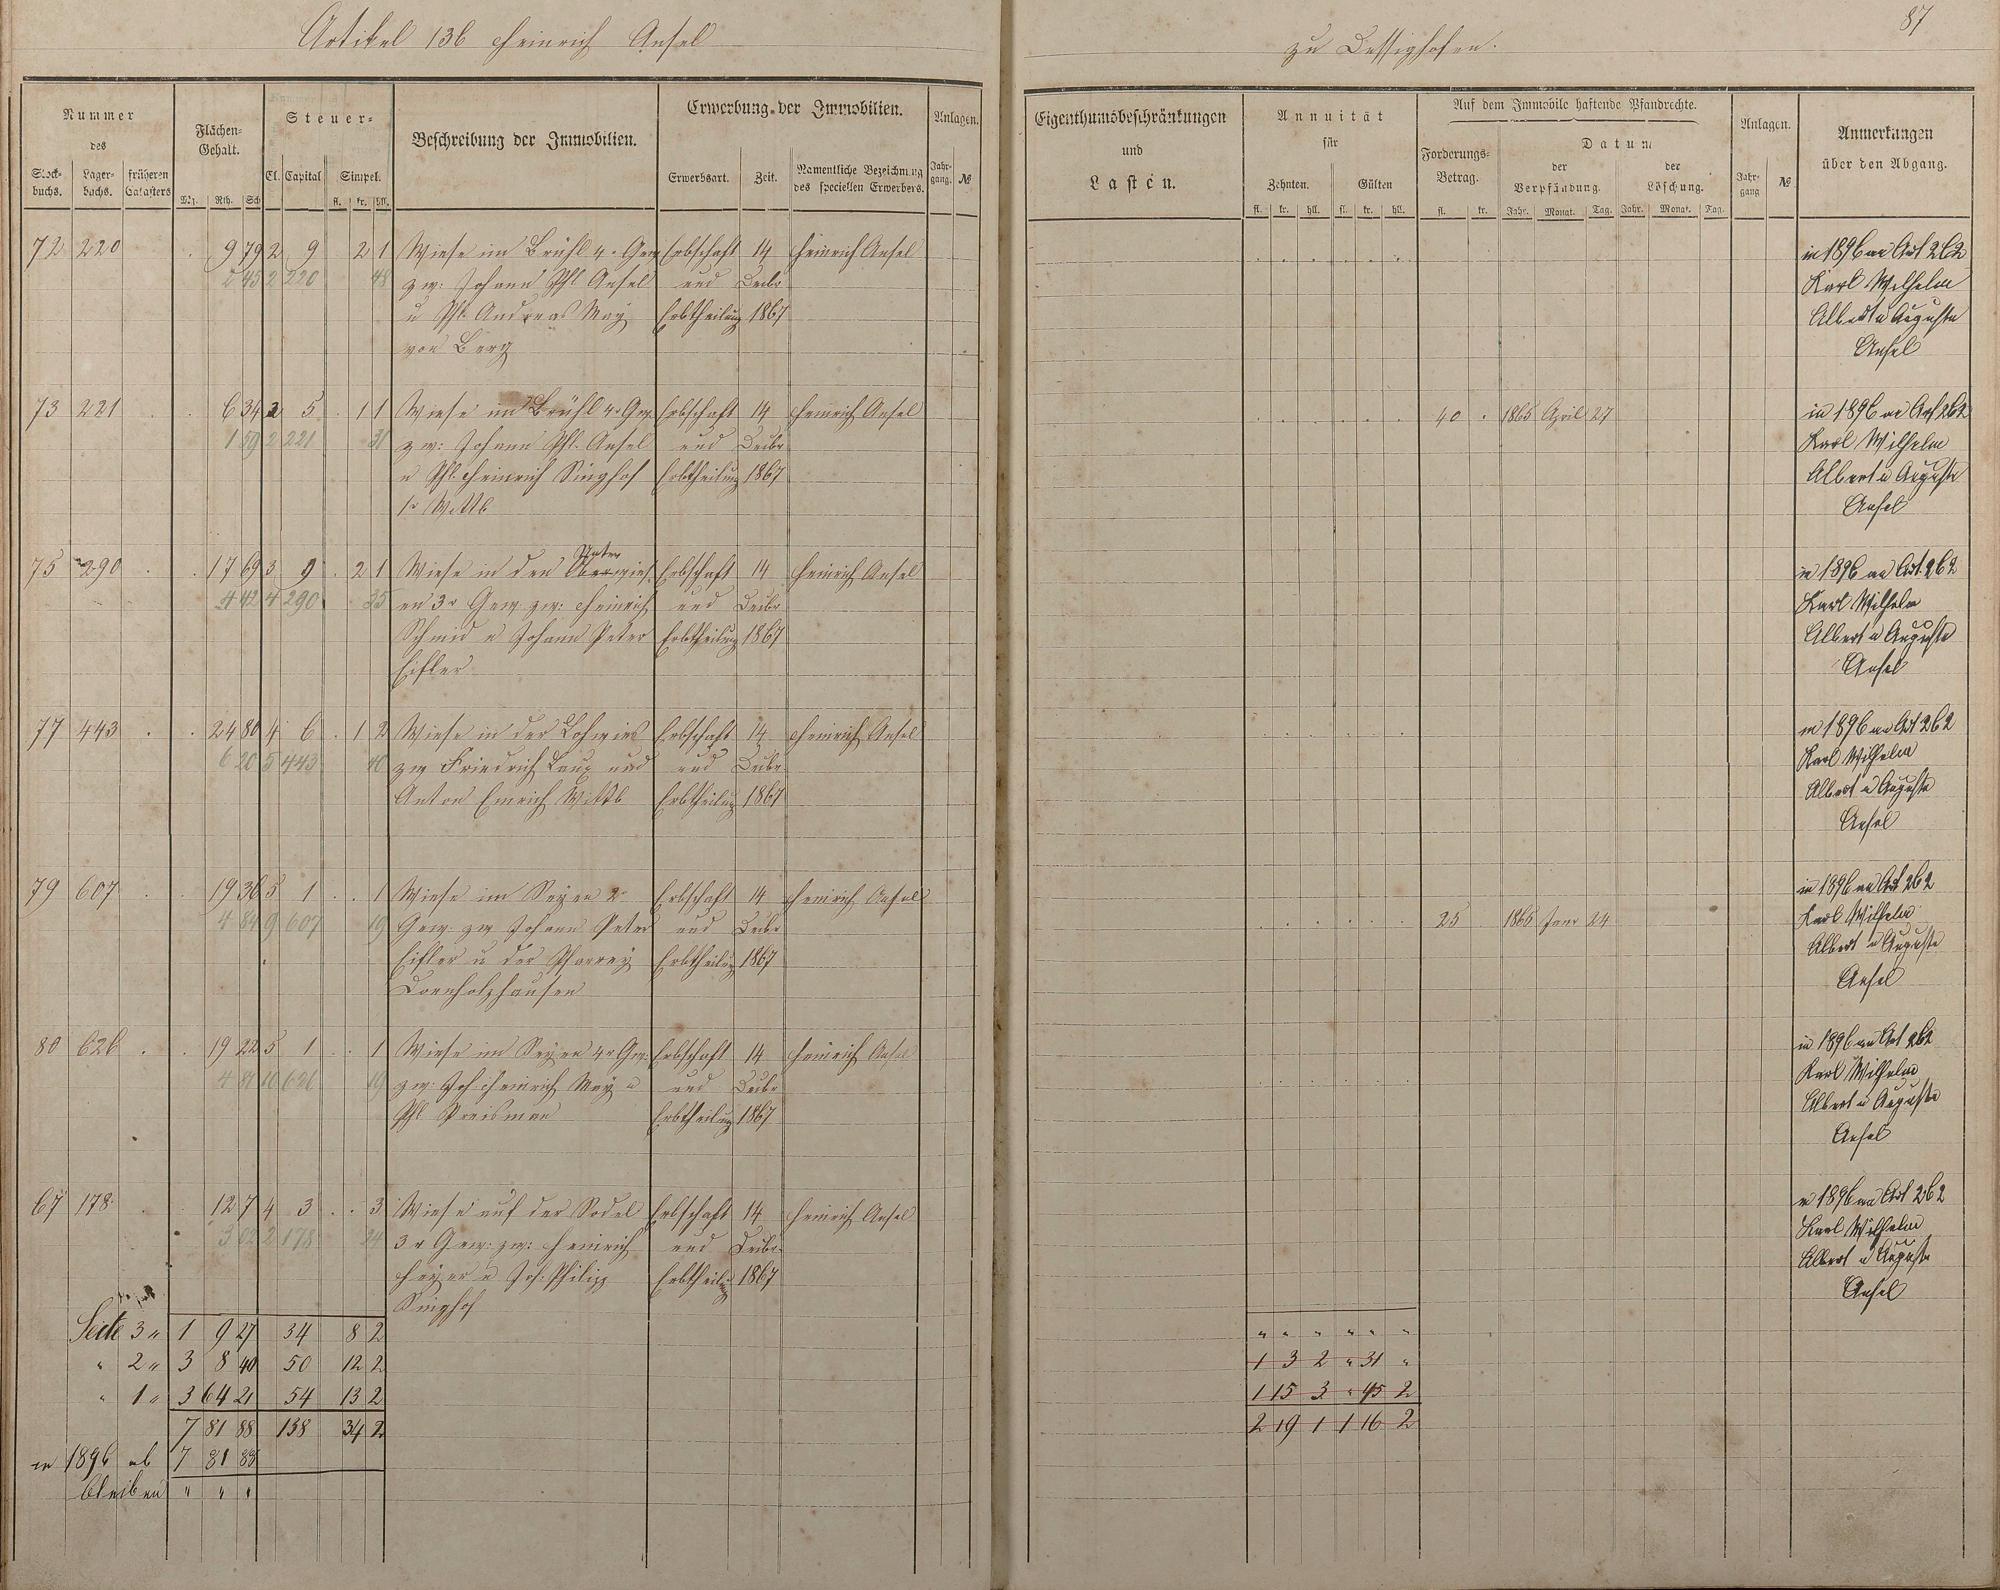 Artikel 136 Heinrich Ansel
zu Dessighofen.
87
Nummer
des
Stock-
buchs.
Lager-
buchs.
früheren
Catasters
Flächen-
Gehalt.
Mg. Rth. Sch
Steuer-
Cl. Capital Simpel.
fl. kr. hll.
Beschreibung der Immobilien.
Erwerbung der Immobilien.
Erwerbsart. Zeit.
Namentliche Bezeichnung
des speciellen Erwerbers.
Anlagen.
Jahr-
gang. №
Eigenthumsbeschränkungen
und
Lasten.
Annuität
für
Zehnten. Gülten
fl. kr. hll. fl. kr. hll.
Auf dem Immobile haftende Pfandrechte.
Forderungs-
Betrag.
fl. kr.
Datum
der
Verpfändung.
der
Löschung.
Jahr. Monat. Tag. Jahr. Monat. Tag.
Anlagen.
Jahr-
gang №
Anmerkungen
über den Abgang.
72 220 9 79 2 9 2 1 Wiese im Brühl 4r Gew Erbschaft 14 Heinrich Ansel in 1896 an Art 262
2 45 2 220 48 zw: Johann Phl Ansel und Decbr Karl Wilhelm
u Phl. Andreas May Erbtheilung 1867 Albert u Auguste
von Berg Ansel
73 221 6 34 2 5 1 1 Wiese im Brühl 4r Gew. Erbschaft 14 Heinrich Ansel 40 1865 April 27 in 1896 an Art 262
1 59 2 221 31 zw: Johann Phl. Ansel und Decbr Karl Wilhelm
u Phl. Heinrich Singhof Erbtheilung 1867 Albert u Auguste
1r Wttb Ansel
75 290 17 69 3 9 2 1 Wiese in den Oberwies Unter Erbschaft 14 Heinrich Ansel in 1896 an Art. 262
4 42 4 290 35 en 3r Gew zw: Heinrich und Decbr Karl Wilhelm
Schmid u Johann Peter Erbtheilung 1867 Albert u Auguste
Eifler Ansel
77 443 24 80 4 6 1 2 Wiese in der Lohwies Erbschaft 14 Heinrich Ansel in 1896 an Art 262
6 20 5 443 40 zw Friedrich Laux und und Decbr Karl Wilhelm
Anton Emrich Wittb Erbtheilung 1867 Albert u Auguste
Ansel
79 607 19 36 5 1 1 Wiese im Seyen 2r Erbschaft 14 Heinrich Ansel 25 1865 Janr 24 in 1896 an Art 262
4 84 9 607 19 Gew. zw Johann Peter und Decbr Karl Wilhelm
Eifler u der Pfarrey Erbtheilung 1867 Albert u Auguste
Dornholzhausen Ansel
80 626 19 22 5 1 1 Wiese im Seyen 4r Gew. Erbschaft 14 Heinrich Ansel in 1896 an Art 262
4 81 10 626 19 zw: Joh. Heinrich May u und Decbr Karl Wilhelm
Phl Preisman Erbtheilung 1867 Albert u Auguste
Ansel
67 178 12 7 4 3 3 Wiese auf der Sodel Erbschaft 14 Heinrich Ansel in 1896 an Art 262
3 02 2 178 24 3r Gew: zw: Heinrich und Decbr Karl Wilhelm
Heyer u Joh: Philipp Erbtheilg 1867 Albert u Auguste
Singhof Ansel
Seite 3 " 1 9 27 34 8 2 " " " " " "
" 2 " 3 8 40 50 12 2 1 3 2 " 31 "
" 1 " 3 64 21 54 13 2 1 15 3 " 45 2
7 81 88 138 34 2 2 19 1 1 16 2
in 1896 ab 7 81 88
bleiben " " "